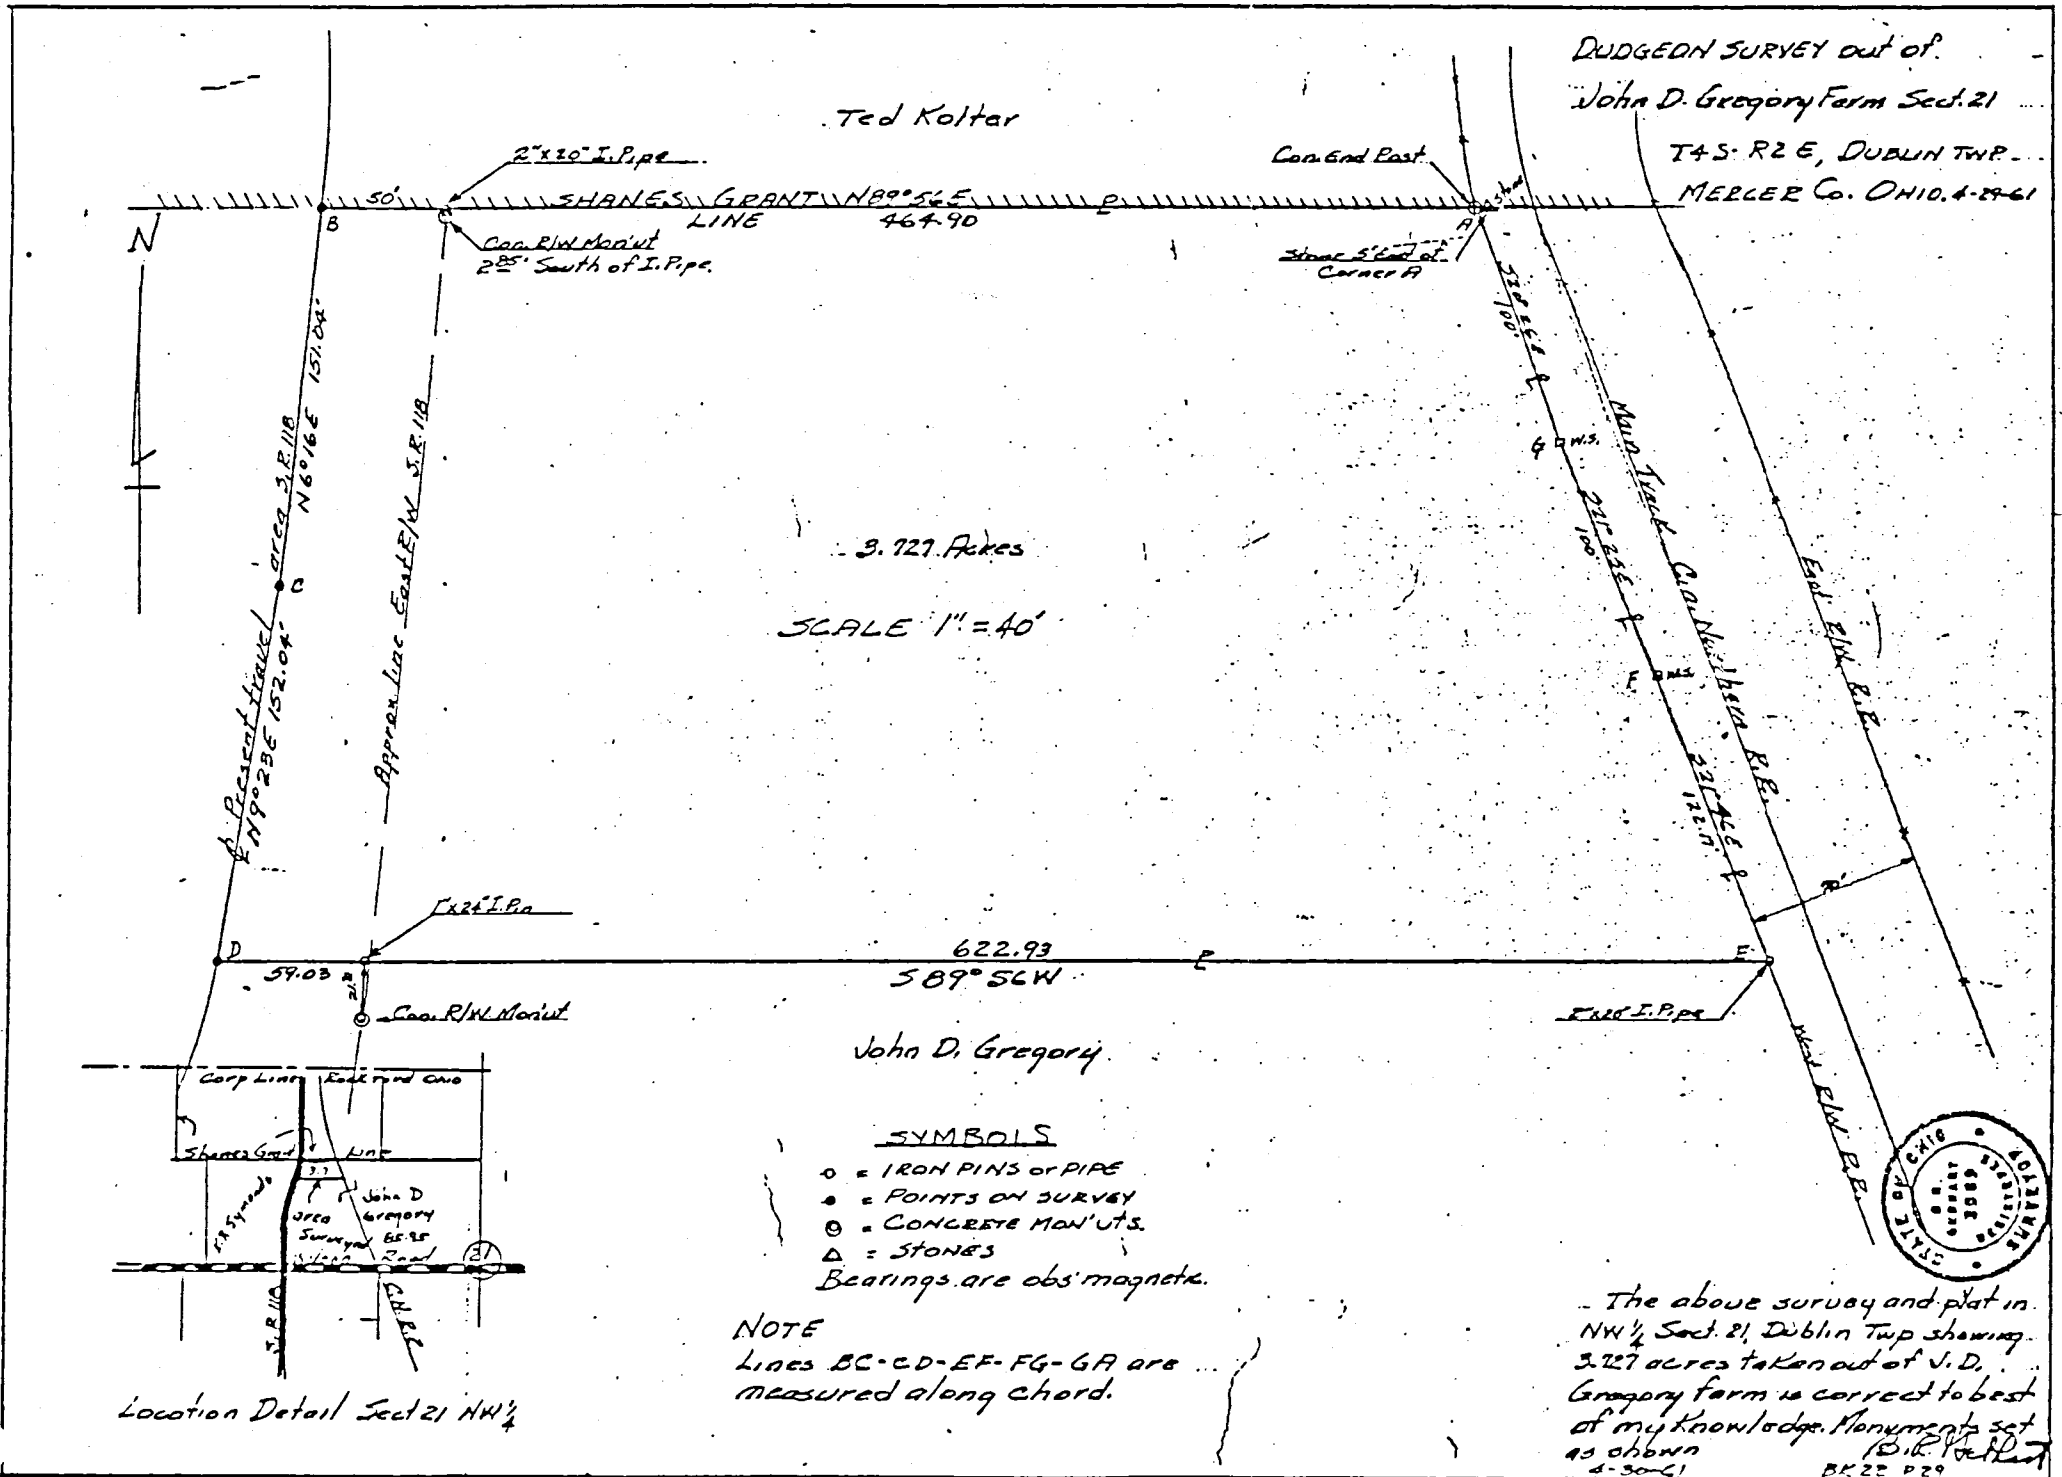 DUDGEON SURVEY out of
John D. Gregory Farm Sect. 21
T4S-R2E, DUBLIN TWP.
MERCER Co. OHIO. 4-29-61
Ted Koltar
2"x20" I. Pipe
Con. End Post
50'
SHANES GRANT N89°56E
LINE 464.90
B
A
Stone
N
Con. R/W Mon'ut
2.85' South of I. Pipe.
Stone S'End of
Corner A
100'
G W.S.
N6°16E 151.04'
C
Present travel area S.R. 118
N9°23E 152.04'
Approx line East R/W S.R. 118
3.727 Acres
SCALE 1" = 40'
100'
Main Track Cin. Northern R.R.
East R/W R.R.
F W.S.
S21°46E
122.17'
1"x24" I. Pin
D
59.03
622.93
S89°56W
E
Con. R/W Mon'ut
I. Pipe
West R/W R.R.
John D. Gregory
Corp Line Rockford Ohio
Shanes Grant Line
3.7
E.R. Symonds
John D
Gregory
85.25
area
Surveyed
Road
21
S.R. 118
C.N.R.R
Location Detail Sect 21 NW 1/4
SYMBOLS
○ = IRON PINS or PIPE
● = POINTS ON SURVEY
◎ = CONCRETE MON'UTS.
△ = STONES
Bearings are obs' magnetic.
NOTE
Lines BC-CD-EF-FG-GA are
measured along chord.
STATE OF OHIO
REGISTERED
SURVEYOR
The above survey and plat in
NW 1/4 Sect. 21, Dublin Twp showing
3.727 acres taken out of J.D.
Gregory farm is correct to best
of my Knowledge. Monuments set
as shown
4-30-61
BK 22 P 29